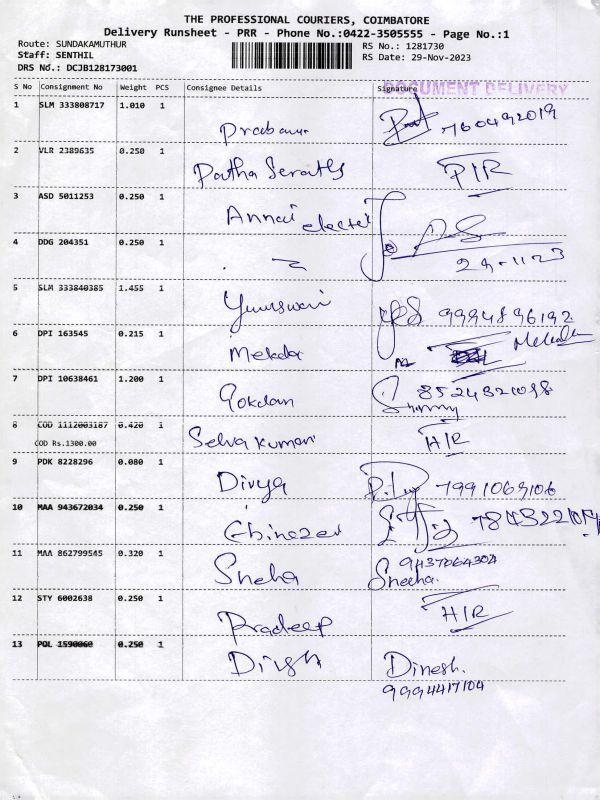 THE PROFESSIONAL COURIERS, COIMBATORE
Delivery Runsheet - PRR - Phone No.:0422-3505555 - Page No.:1
Route: SUNDAKAMUTHUR
RS No.: 1281730
Staff: SENTHIL
RS Date: 29-Nov-2023
DRS No.: DCJB128173001
DOCUMENT DELIVERY
S No Consignment No Weight PCS Consignee Details Signature
1 SLM 333808717 1.010 1
2 VLR 2389635 0.250 1 P/R
3 ASD 5011253 0.250 1 Annai
4 DDG 204351 0.250 1 29-11-23
5 SLM 333840385 1.455 1 9994896192
6 DPI 163545 0.215 1
7 DPI 10638461 1.200 1 Gokdan
8 COD 1112003187 0.420 1 Selva kumari H/R
COD Rs.1300.00
9 PDK 8228296 0.080 1 Divya
10 MAA 943672034 0.250 1 Ebinezer
11 MAA 862799545 0.320 1 Sneha 9437064304
Sneeha.
12 STY 6002638 0.250 1 Pradeep H/R
13 POL 1590060 0.250 1 Dinesh.
9994417104